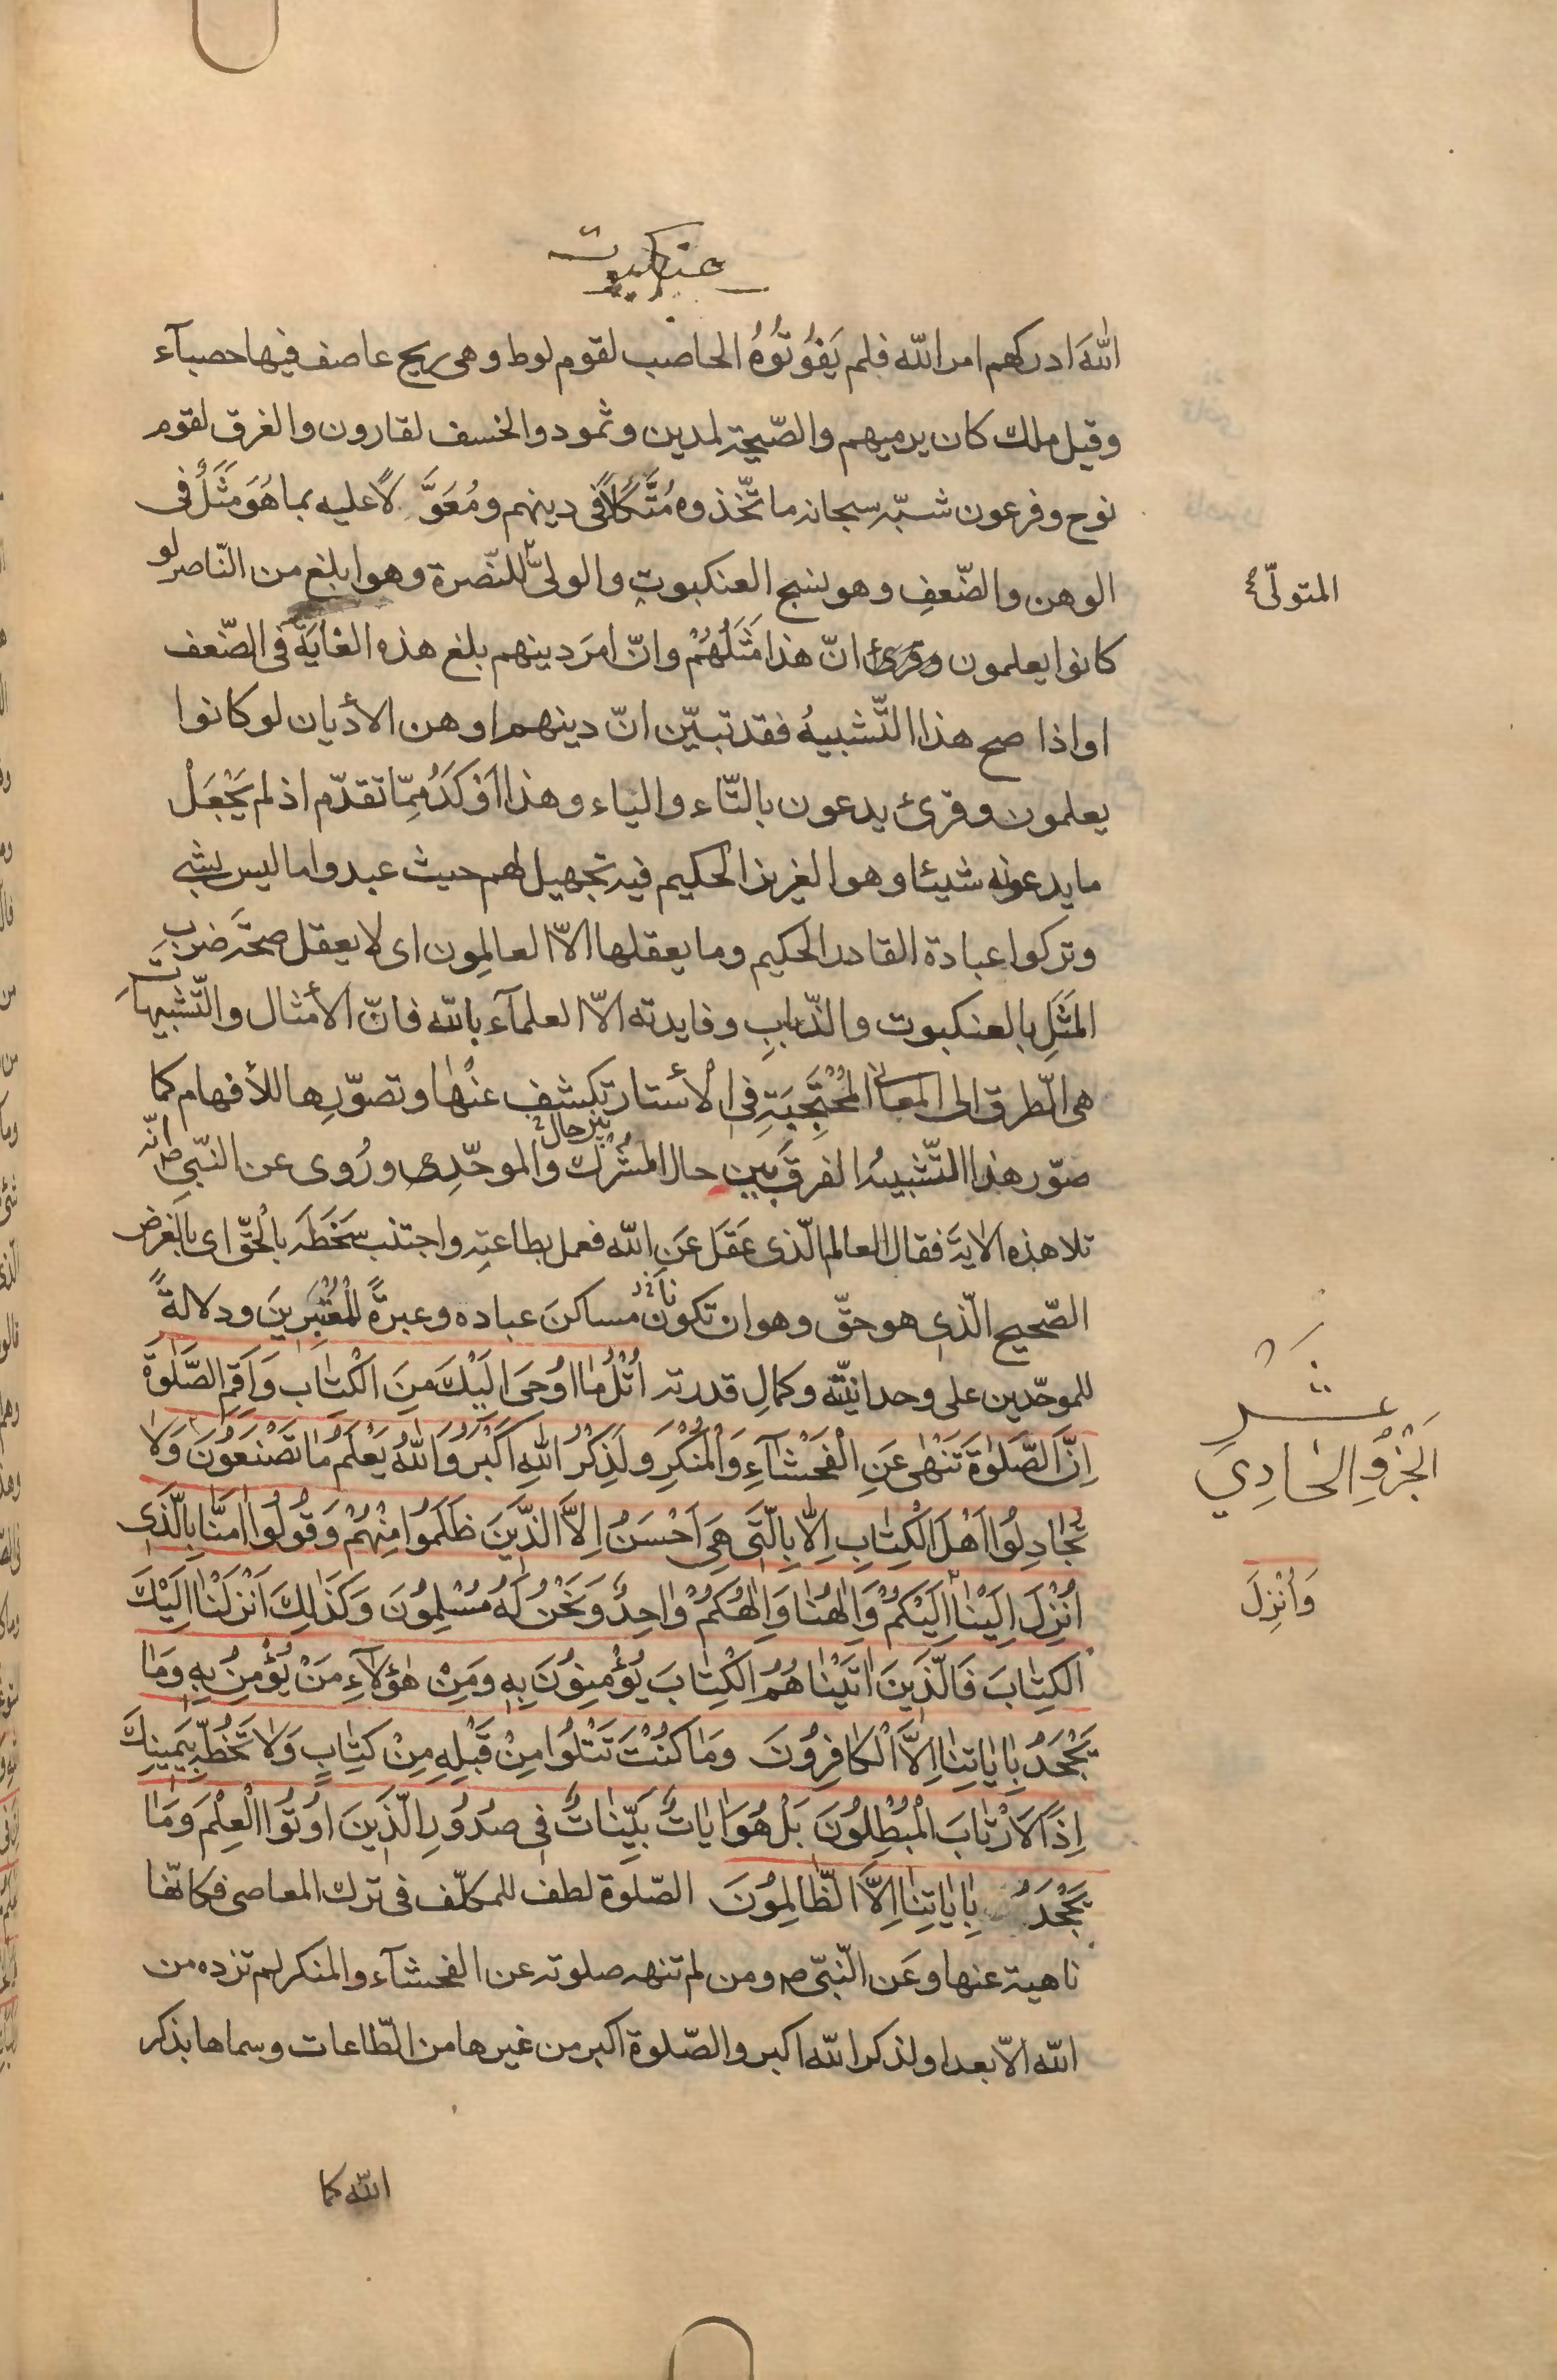 عنكبوت
اللّٰهَ ادركهم امر اللّٰه فلم يَفُوتُوُهُ الحاصب لقوم لوط وهى ريح عاصف فيها حصبآء
وقيل ملك كان يرميهم والصّيحة لمدين وثمود والخسف لقارون والغرق لقوم
نوح وفرعون شبّه سبحانه ما تّخذوه مُتَّكَلًا فى دينهم ومُعَوَّلًا عليه بما هُوَ مَثَلٌ فى
الوهن والضّعفِ وهو نسج العنكبوتِ والولىّ للنّصرة وهو ابلغ من النّاصر لو
المتولّى
كانوا يعلمون وقرئ انّ هذا مَثَلُهُمْ وانّ امرَ دينهم بلغ هذه الغايَةَ فى الضّعف
او اذا صح هذا التَّشبيهُ فقد تبيّن انّ دينهم اوهن الأديان لو كانوا
يعلمون وقرئ يدعون بالتّاء والياء وهذا اَوْكَدُ مِمّا تقدّم اذ لم يَجْعَلْ
ما يدعونه شيئا وهو العزيز الحكيم فيه تجهيل لهم حيث عبدوا ما ليس بشئ
وتركوا عبادة القادر الحكيم وما يعقلها الّا العالِمون اى لا يعقل صحّةَ ضربِ
المَثَلِ بالعنكبوت والذّبابِ وفايدته الّا العلمآء باللّه فانّ الأمثال والتّشبيهاتِ
هى الطّرق الى المعانى المُحْتَجِبَةِ فى الأستار تكشف عنْها وتصوّرها للأفهام كما
صوّر هذا التّشبيهُ الفرقَ بين حال المشرك والموحّدِ وَرُوى عن النّبى ص انّه
بين حال
تلا هذه الاٰية فقال العالم الّذى عَقَلَ عَنِ اللّه فعمل بطاعتِه واجتنب سَخَطَه بِالْحَقّ اى بالغرض
الصّحيح الّذى هو حقّ وهو ان تكونا مساكنَ عباده وعبرةً لِلْمُعْتَبِرينَ ودلالةً
للموحّدين على وحدانيّته وكمالِ قدرته اُتْلُ مٰا اوُحِىَ اِلَيْكَ مِنَ الْكِتٰابِ وَاَقِمِ الصَّلٰوةَ
عشر
اِنَّ الصَّلٰوةَ تَنْهٰى عَنِ الْفَحْشٰآءِ وَالْمُنْكَرِ وَلَذِكْرُ اللّٰهِ اَكْبَرُ وَاللّٰهُ يَعْلَمُ مٰا تَصْنَعُونَ وَلاٰ
اَلْجُزْوُ الْحٰادِي
تُجٰادِلُوا اَهْلَ الْكِتٰابِ اِلّٰا بِالَّتى هِىَ اَحْسَنُ اِلاَّ الَّذينَ ظَلَمُوا مِنْهُمْ وَقُولُوا اٰمَنّٰا بِالَّذى
اُنْزِلَ اِلَيْنٰا اِلَيْكُمْ وَاِلٰهُنٰا وَاِلٰهُكُمْ وٰاحِدٌ وَنَحْنُ لَهُ مُسْلِمُونَ وَكَذٰلِكَ اَنْزَلْنٰا اِلَيْكَ
وَاُنْزِلَ
الْكِتٰابَ فَالَّذينَ اٰتَيْنٰاهُمُ الْكِتٰابَ يُؤْمِنُونَ بِهِ وَمِنْ هٰؤُلآءِ مَنْ يُؤْمِنُ بِهِ وَمٰا
يَجْحَدُ بِاٰيٰاتِنٰا اِلاَّ الْكٰافِرُونَ وَمٰا كُنْتَ تَتْلُوا مِنْ قَبْلِهِ مِنْ كِتٰابٍ وَلاٰ تَخُطُّهُ بِيَمينِكَ
اِذًا لاَرْتٰابَ الْمُبْطِلُونَ بَلْ هُوَ اٰيٰاتٌ بَيِّنٰاتٌ فى صُدُورِ الَّذينَ اوُتُوا الْعِلْمَ وَمٰا
يَجْحَدُ بِاٰيٰاتِنٰا اِلاَّ الظّٰالِمُونَ الصّلوة لطف للمكلّف فى ترك المعاصى فكانّها
ناهية عنها وعَن النّبىّ ص ومن لم تنهه صلوته عن الفحشآء والمنكر لم تزده من
اللّه الّا بعدا ولذكر اللّه اكبر والصّلوة اكبر من غيرها من الطّاعات وسماها بذكر
اللّه كما